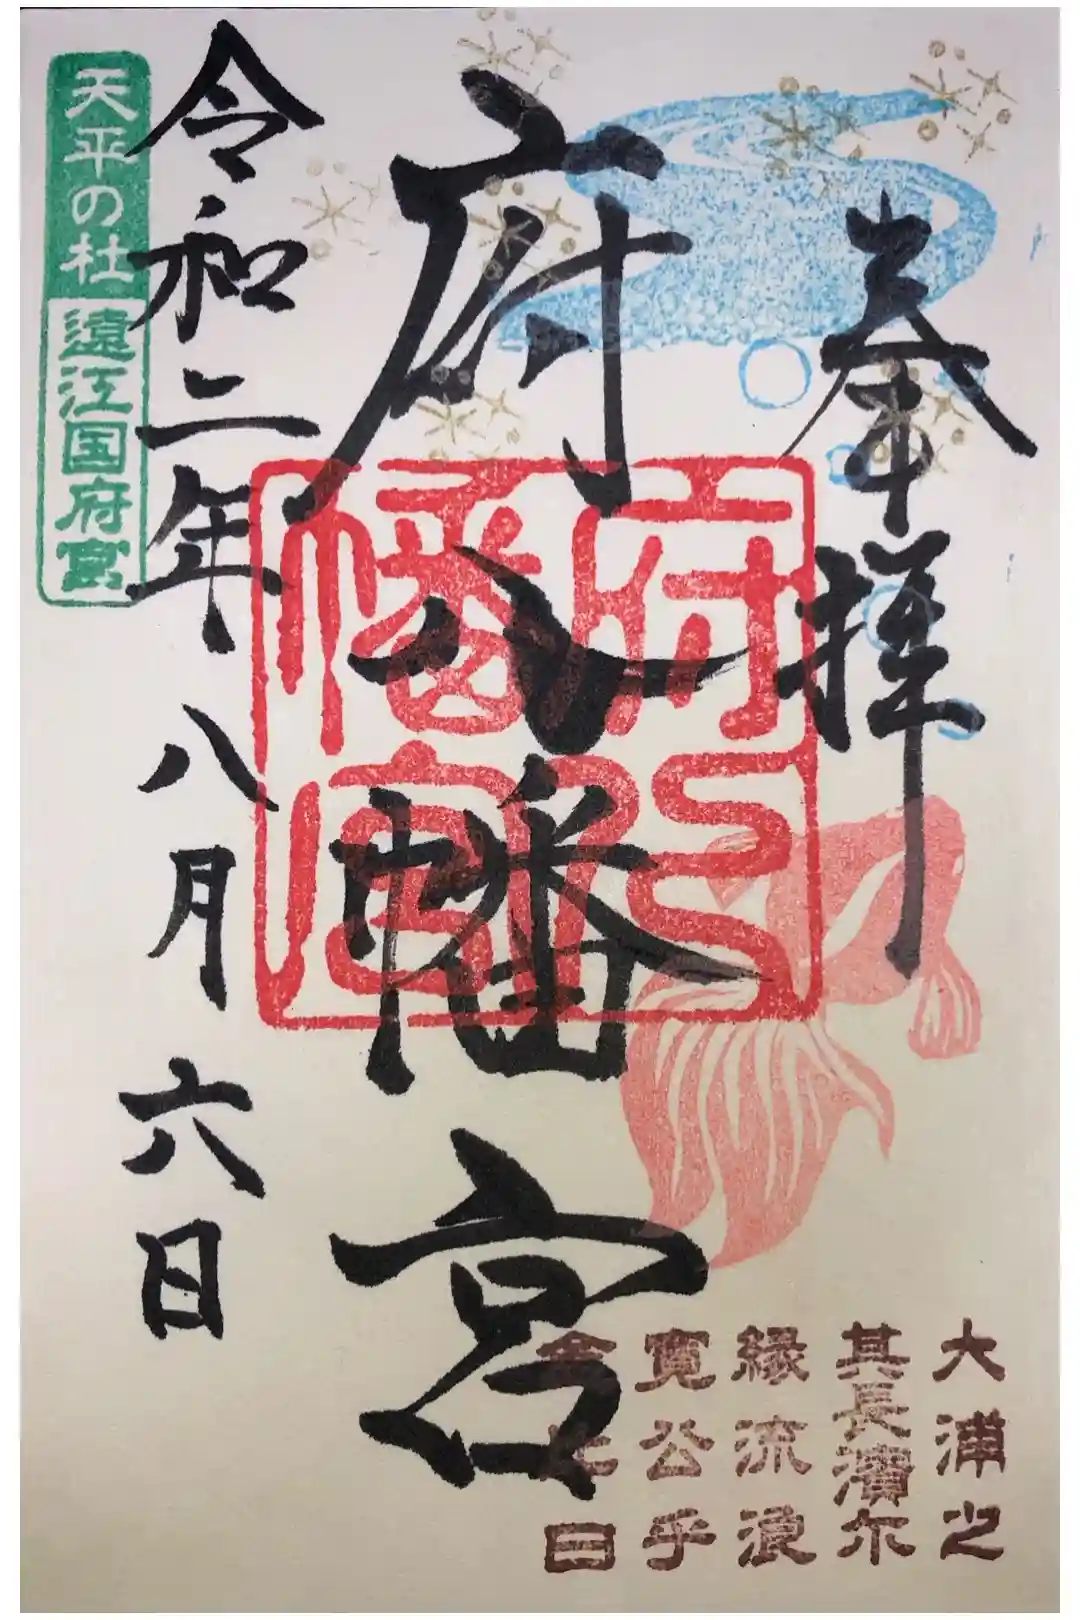 奉拝
府八幡宮
令和二年八月六日
天平の杜
遠江国府宮
府八
幡宮
大浦之
其長濱尓
縁流浪
寛公乎